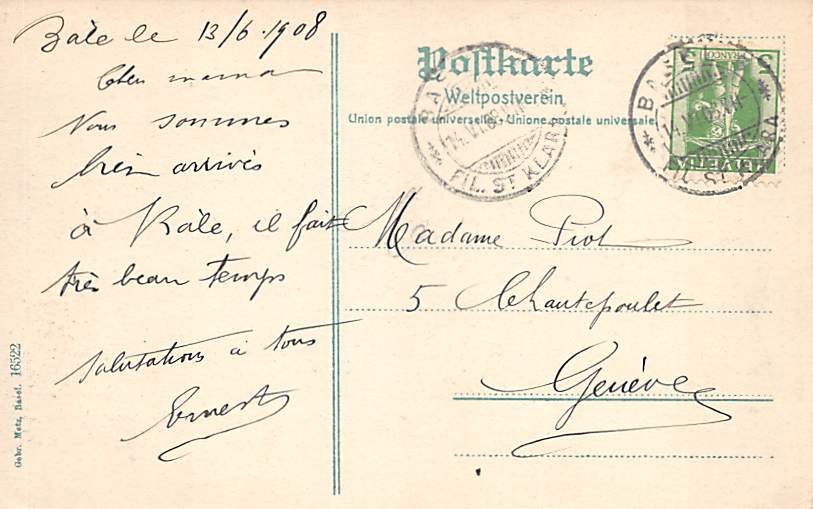 Bâle le 13/6.1908
Chère maman
Nous sommes
bien arrivés
à Bâle, il fait
très beau temps
salutations à tous
Ernest
Postkarte
Weltpostverein
Union postale universelle. - Unione postale universale.
Madame Piot
5 Chantepoulet
Genève
BASEL
14.VI.08
FIL. ST KLARA
BASEL
14.VI.08.VII-
FIL. ST KLARA
FRANCO
5 5
HELVETIA
Gebr. Metz, Basel. 16522